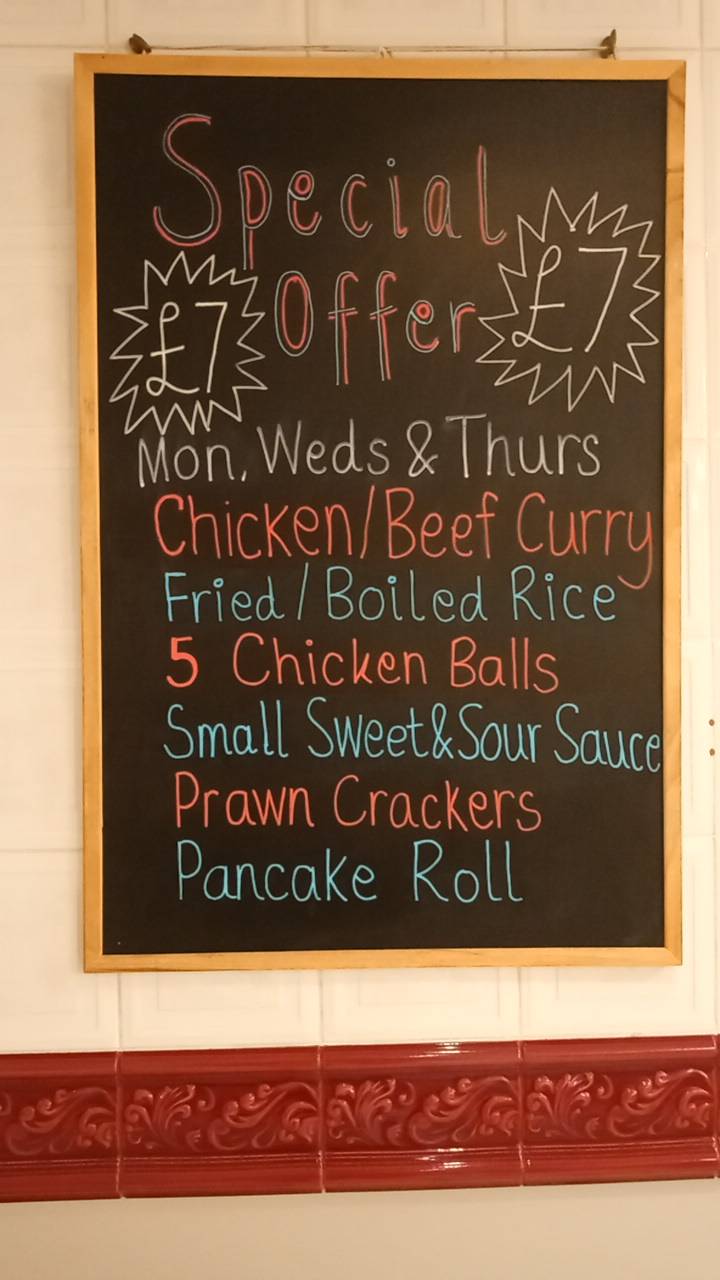 Special
Offer
£7
£7
Mon, Weds & Thurs
Chicken/Beef Curry
Fried/Boiled Rice
5 Chicken Balls
Small Sweet&Sour Sauce
Prawn Crackers
Pancake Roll